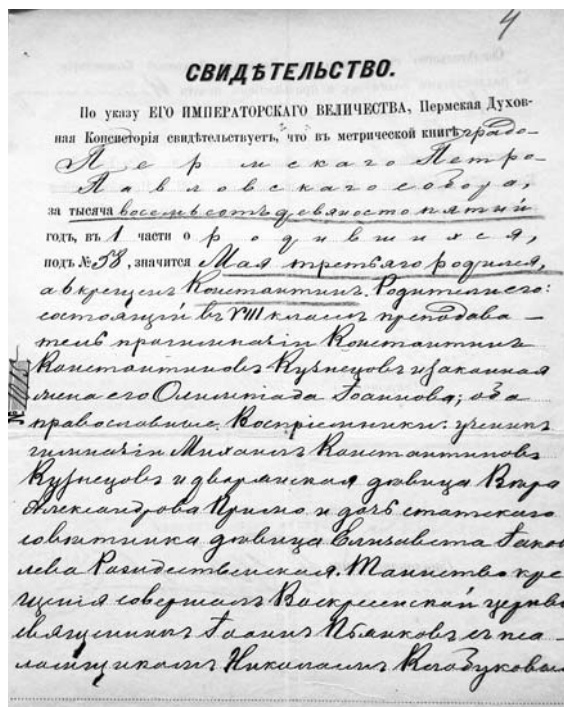 4
СВИДѢТЕЛЬСТВО.
По указу ЕГО ИМПЕРАТОРСКАГО ВЕЛИЧЕСТВА, Пермская Духов-
ная Консисторія свидѣтельствуетъ, что въ метрической книгѣ градо-
Пермскаго Петро-
Павловскаго собора,
за тысяча восемьсотъ девяносто пятый
годъ, въ 1 части о родившихся,
подъ № 58, значится Мая третьяго родился,
а крещенъ Константинъ. Родители его:
состоящій въ VIII классѣ преподава-
тель прогимназіи Константинъ
Константиновъ Кузнецовъ и законная
жена его Олимпіада Іоаннова; оба
православные. Воспріемники: ученикъ
гимназіи Михаилъ Константиновъ
Кузнецовъ и дворянская дѣвица Вѣра
Александрова и дочь статскаго
совѣтника дѣвица Елизавета Іаков
лева Рождественская. Таинство кре
щенія совершалъ Воскресенской церкви
священникъ Іоаннъ Пьянковъ съ пса-
ломщикомъ Николаемъ
№